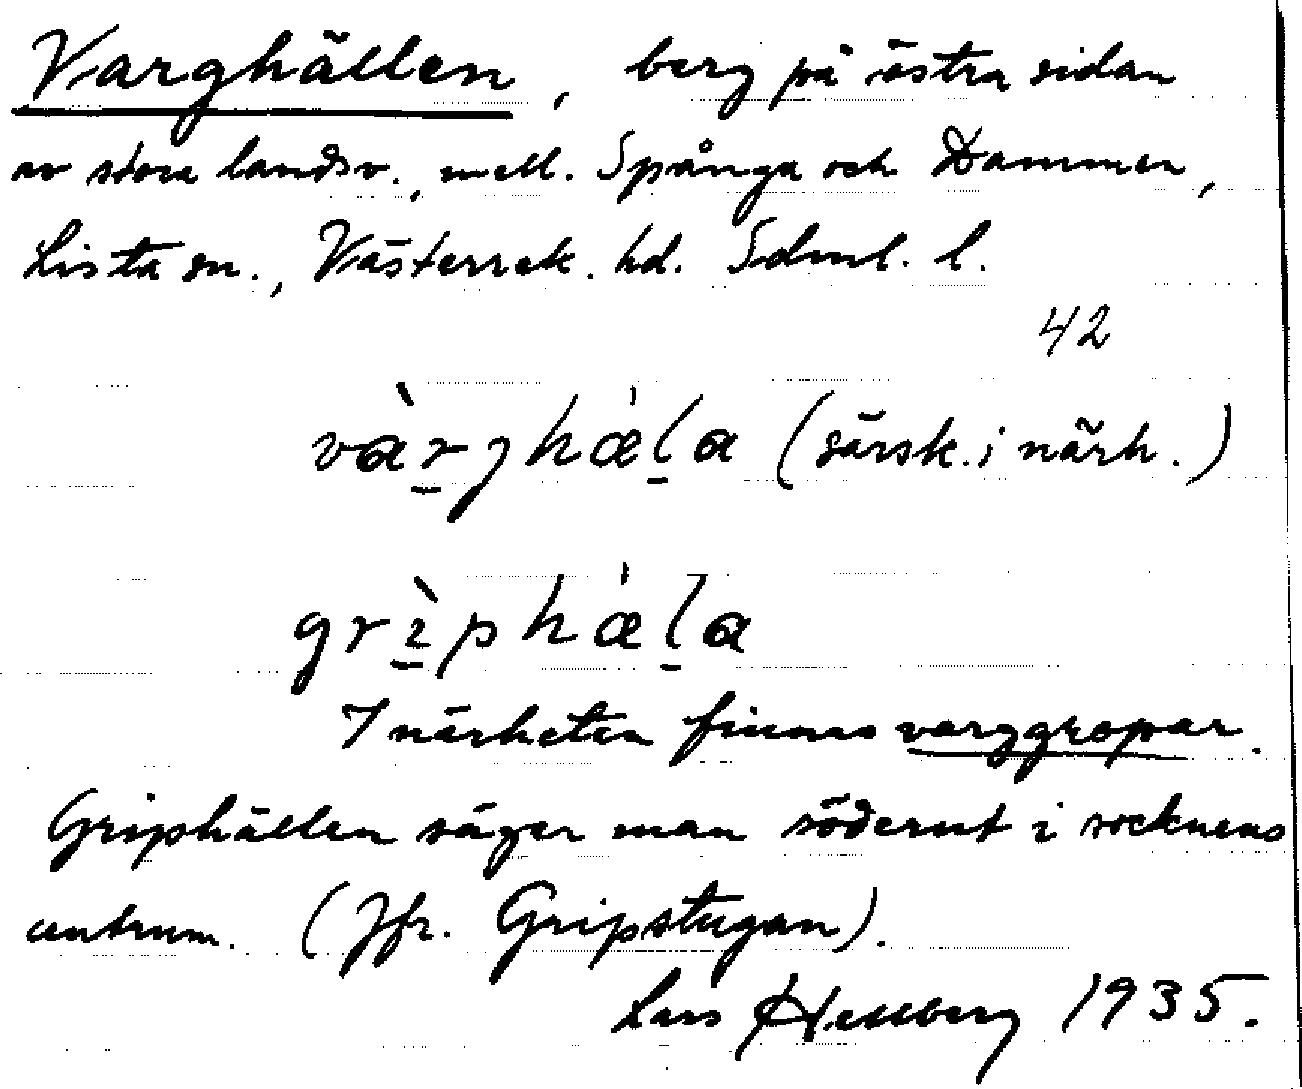 Varghällen, berg på östra sidan
av stora landsv., mell. Spånga och Dammen,
Lista sn., Västerrek. hd. Sdml. l.
42
vàrghæ̀la (särsk. i närh.)
grìphæ̀la
I närheten finnas varggropar.
Griphällen säger man söderut i socknens
centrum. (Jfr. Gripstugan).
Lars Hellberg 1935.